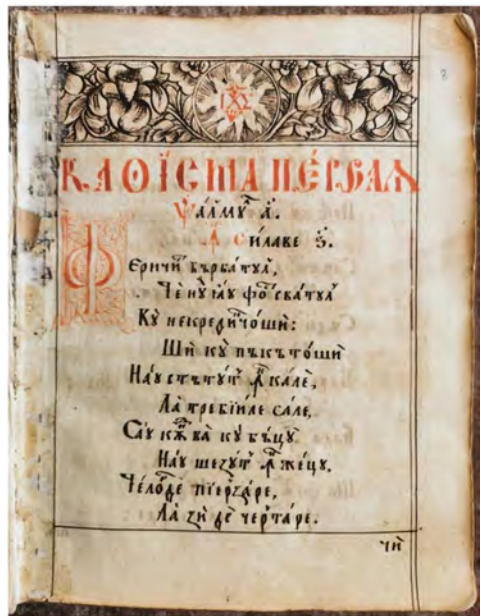 ІХС
8
КАѲІСМА ПЕ́РВАѦ
Ѱалмꙋⷧ҇ а҃.
Ꙟ силаве ѕ҃.
Феричиⷮ бърбатꙋл,
Че нꙋ ꙗꙋ фоⷭ сватꙋл
Кꙋ некредиⷩчоший:
Ши кꙋ пъкътоший
Наꙋ стътꙋⷮ ꙟ кале,
Ла требїиле сале,
Саꙋ къⷩ ва кꙋ бъцꙋ
Наꙋ шеꙁꙋⷮ ꙟ жецꙋ.
Челоⷬ де пїерꙁаре,
Ла ꙁи де чертаре.
чи